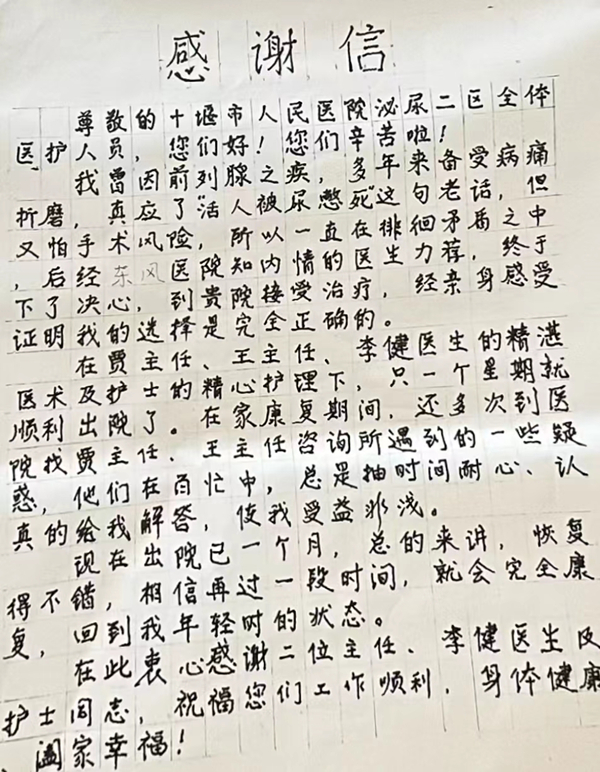 感谢信
尊敬的十堰市人民医院泌尿二区全体
医护人员，您们好！您们辛苦啦！
我曾因前列腺之疾，多年来备受病痛
折磨，真应了“活人被尿憋死”这句老话，但
又怕手术风险，所以一直在徘徊矛盾之中
，后经东风医院知内情的医生力荐，终于
下了决心，到贵院接受治疗，经亲身感受
证明我的选择是完全正确的。
在贾主任、王主任、李健医生的精湛
医术及护士的精心护理下，只一个星期就
顺利出院了。在家康复期间，还多次到医
院找贾主任、王主任咨询所遇到的一些疑
惑，他们在百忙中，总是抽时间耐心、认
真的给我解答，使我受益非浅。
现在出院已一个月，总的来讲，恢复
得不错，相信再过一段时间，就会完全康
复，回到我年轻时的状态。
在此衷心感谢二位主任、李健医生及
护士同志，祝福您们工作顺利，身体健康
、阖家幸福！